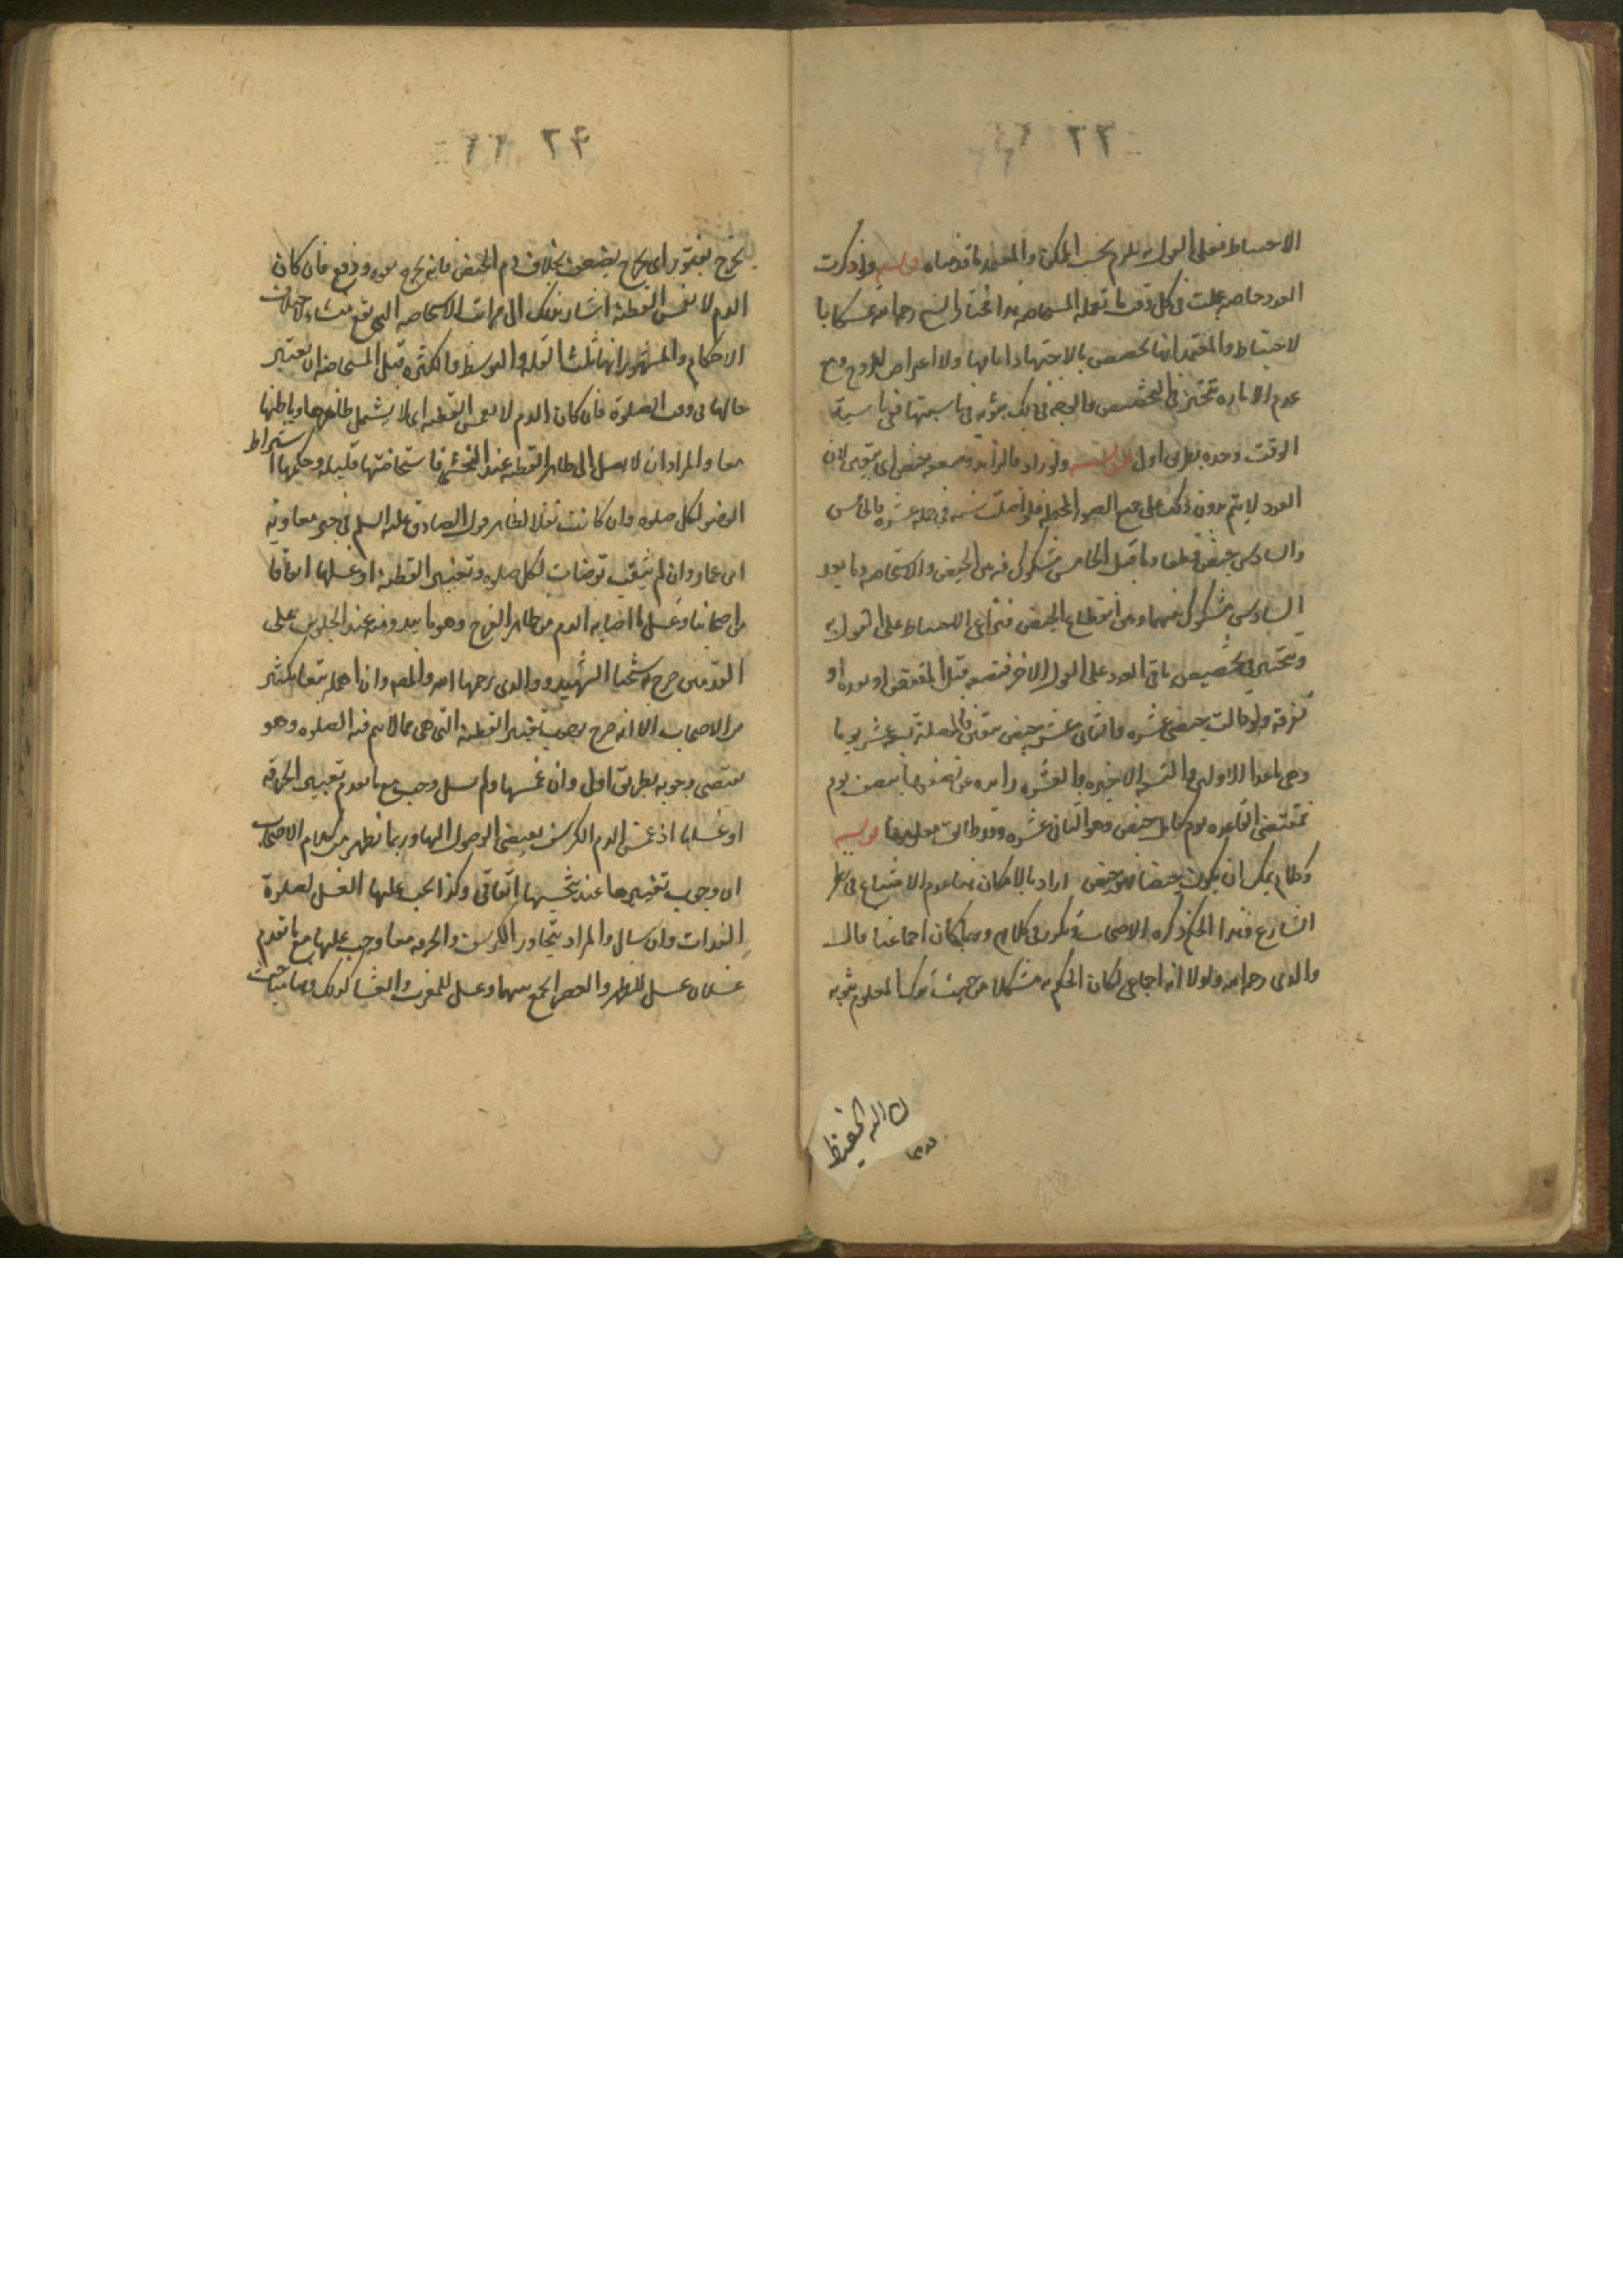 ٢٣
الاحتياط فعلى القول به يلزم بحسب المكنة والمعتمد ما قدمناه قوله ولو ذكرت
العدد خاصة عملت في كل وقت ما تعمله المستحاضة هذا مختار الشيخ رحمه الله تمسكا با
لاحتياط والمعتمد انها تخصص بالاجتهاد ايامها ولا اعتراض للزوج ومع
عدم الامارة تتخير في التخصيص
الوقت وحده بطريق اولى
العدد لا يتم بدون ذلك على جميع الصور
والسادس حيض قطعا وما قبل الخامس مشكوك فيه بين الحيض والاستحاضة وما بعد
السادس مشكوك فيهما وبين انقطاع الحيض فتراعي الاحتياط على القول به
وتتخير في تخصيص باقي العدد على القول الاخر فتضعه قبل المتيقن او بعده او
تفرقه ولو قالت حيضي عشرة والثاني عشر حيض بيقين فالمضلة تسعة عشر يوما
وهي ما عدا الاولى والتسعة الاخيرة والعشرة زائدة عن نصفها بنصف يوم
فمقتضى القاعدة يوم كامل حيض وهو الثاني عشر قوله
وكلما يمكن ان يكون حيضا فهو حيض اراد بالامكان هنا عدم الامتناع في نظر
الشارع وهذا الحكم ذكره الاصحاب وتكرر في كلامهم وربما كان اجماعيا قال
والدي رحمه الله ولولا انه اجماعي لكان الحكم به مشكلا من حيث ترك المعلوم ثبوته
الله الحفيظ
٢۴
يخرج بفتور اي يخرج بضعف بخلاف دم الحيض فانه يخرج بقوة ودفع فان كان
الدم لا يغمس القطنة اشار بذلك الى مراتب الاستحاضة التي تقع منشاء لاختلاف
الاحكام والمشهور انها ثلث القلة والتوسط والكثرة قبل المستحاضة ان تعتبر
حالها في وقت الصلوة فان كان الدم لا يغمس القطنة اي لا يشمل ظاهرها وباطنها
معا والمراد ان لا يصل الى ظاهر القطنة عند التحشي فاستحاضتها قليلة وحكمها اشتراط
الوضو لكل صلوة وان كانت نفلا لظاهر قول الصادق عليه السلم في خبر معاوية
ابن عمار وان لم يثقب توضات لكل صلوة وتغيير القطنة او غسلها اتفاقا
من اصحابنا وغسل ما اصابه الدم من ظاهر الفرج وهو ما يبدو منه عند الجلوس على
القدمين صرح به شيخنا الشهيد ووالدي رحمهما الله والمص وان اهمله تبعا لكثير
من الاصحاب الا انه صرح بوجوب تغيير القطنة التي هي مما لا تتم فيه الصلوة وهو
يقتضي وجوبه بطريق اولى وان غمسها ولم يسل وجب مع ما تقدم تغيير الخرقة
او غسلها اذ غمس الدم الكرسف يقتضي الوصول اليها وربما يظهر من كلام الاصحاب
ان وجوب تغييرها عند تنجسها اتفاقي وكذا يجب عليها الغسل لصلوة
الغداة وان سال والمراد يتجاوز الكرسف والخرقة معا وجب عليها مع ما تقدم
غسلان غسل للظهر والعصر تجمع بينهما وغسل للمغرب والعشا كذلك